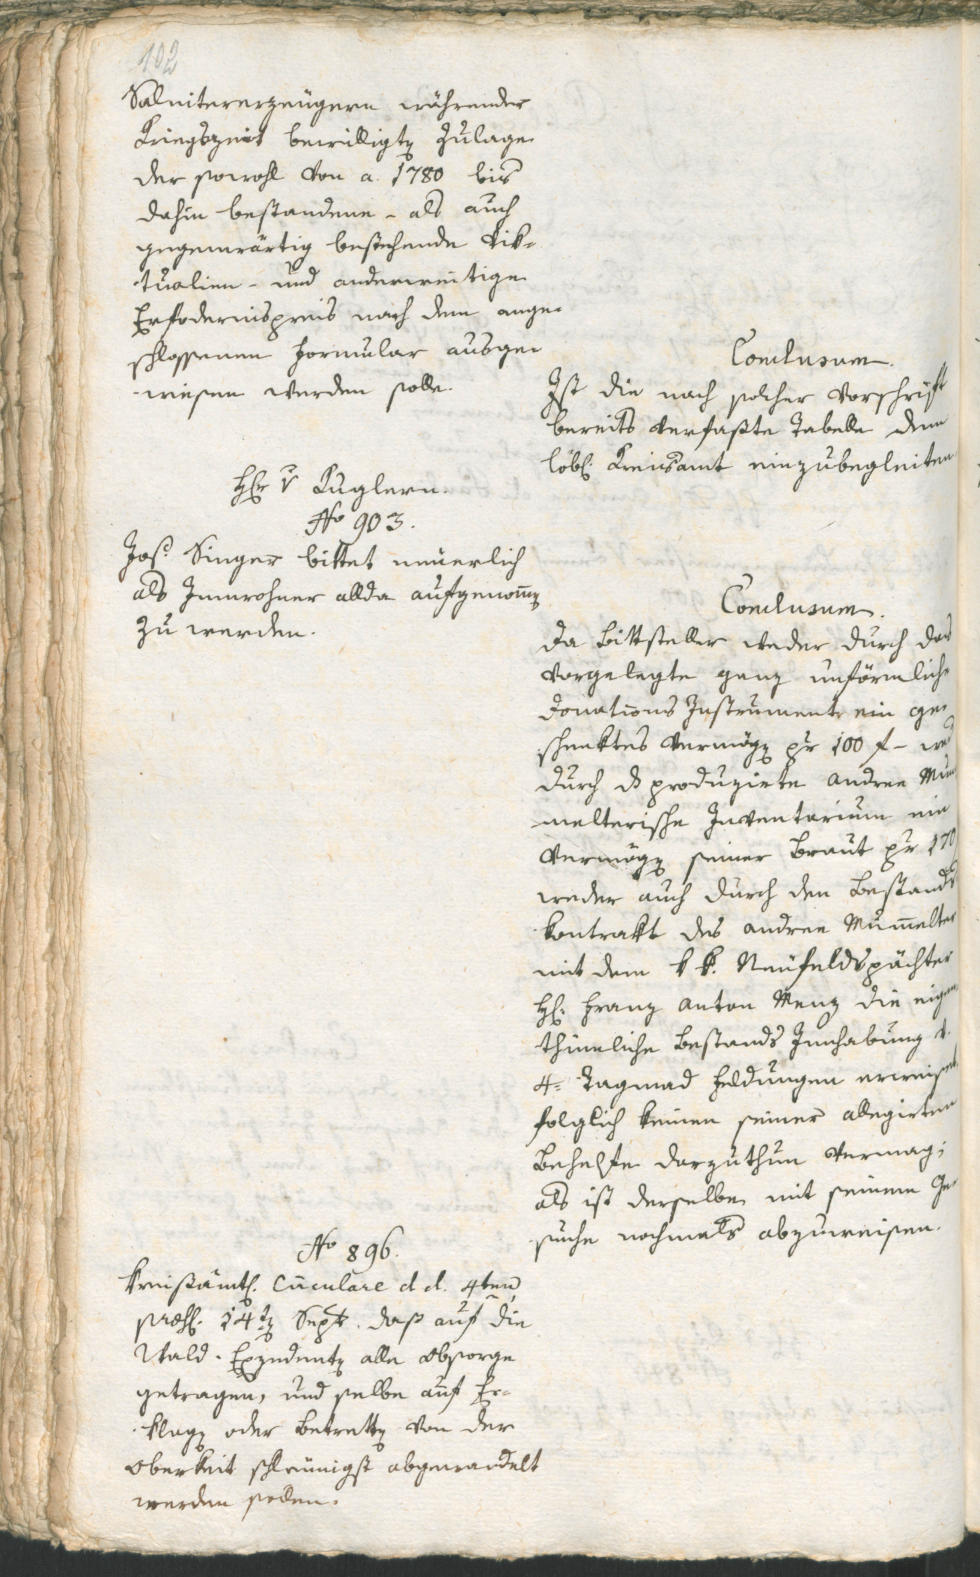 102
Salnitererzeügern während der
Kriegszeit bewilligte Zulage
der sowohl von a. 1780 bis
dahin bestandene - als auch
gegenwärtig bestehende Vik-
tualien - und anderweitige
Erfodernispreis nach dem ange-
schlossenen Formular ausge-
wiesen werden solle.
Conclusum.
Ist die nach solcher Vorschrift
bereits verfaßte Tabelle dem
löbl. Kreisamt einzubegleiten
H. v Kuglern.
No 903.
Jos. Singer bittet neüerlich
als Innwohner allda aufgenomen
zu werden.
Conclusum.
Da Bittsteller weder durch das
vorgelegte ganz unförmliche
Donations Instrument ein ge-
schenktes Vermögen pr 100 f -
durch produzirte Andree Mu
melterische Inventarium ein
Vermögen seiner Braut pr 170
weder auch durch den Bestands
kontrakt des Andree Mumelter
mit dem k k. Neufeldspächter
H. Franz Anton Menz die eigen
thümliche Bestands Innhabung
4- Tagmad Feldungen erweiset
folglich keinen seiner allegirten
Behelfe darzuthun vermag;
als ist derselbe mit seinem Ge-
suche nochmals abzuweisen.
No 896.
Kreisämtl. Circulare d. d. 4ten
præs. 14ten Sept. daß auf die
Wald-Exzedenten alle Obsorge
getragen, und selbe auf Er-
klagen oder Betretten von der
Oberkeit schleunigst abgewandelt
werden sollen.